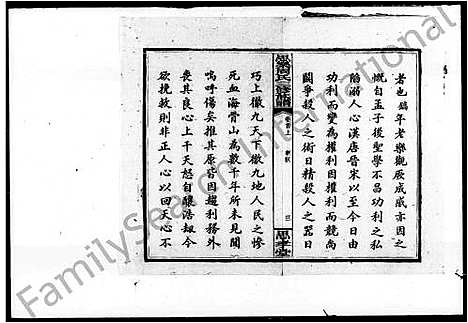 者也錦年老樂觀厥成感亦因之
慨自孟子後聖學不昌功利之私
陷溺人心漢唐晉宋以至今日由
功利而變為權利因權利而競尚
鬪爭殺人之術日精殺人之器日
氏
族譜
卷首上
三
思孝堂
巧上徹九天下徹九地人民之慘
死血海骨山為數千年所未見聞
嗚呼傷矣推其原皆因趨利務外
喪其良心上干天怒自釀浩劫今
欲挽救則非正人心以回天心不
FamilySearch International